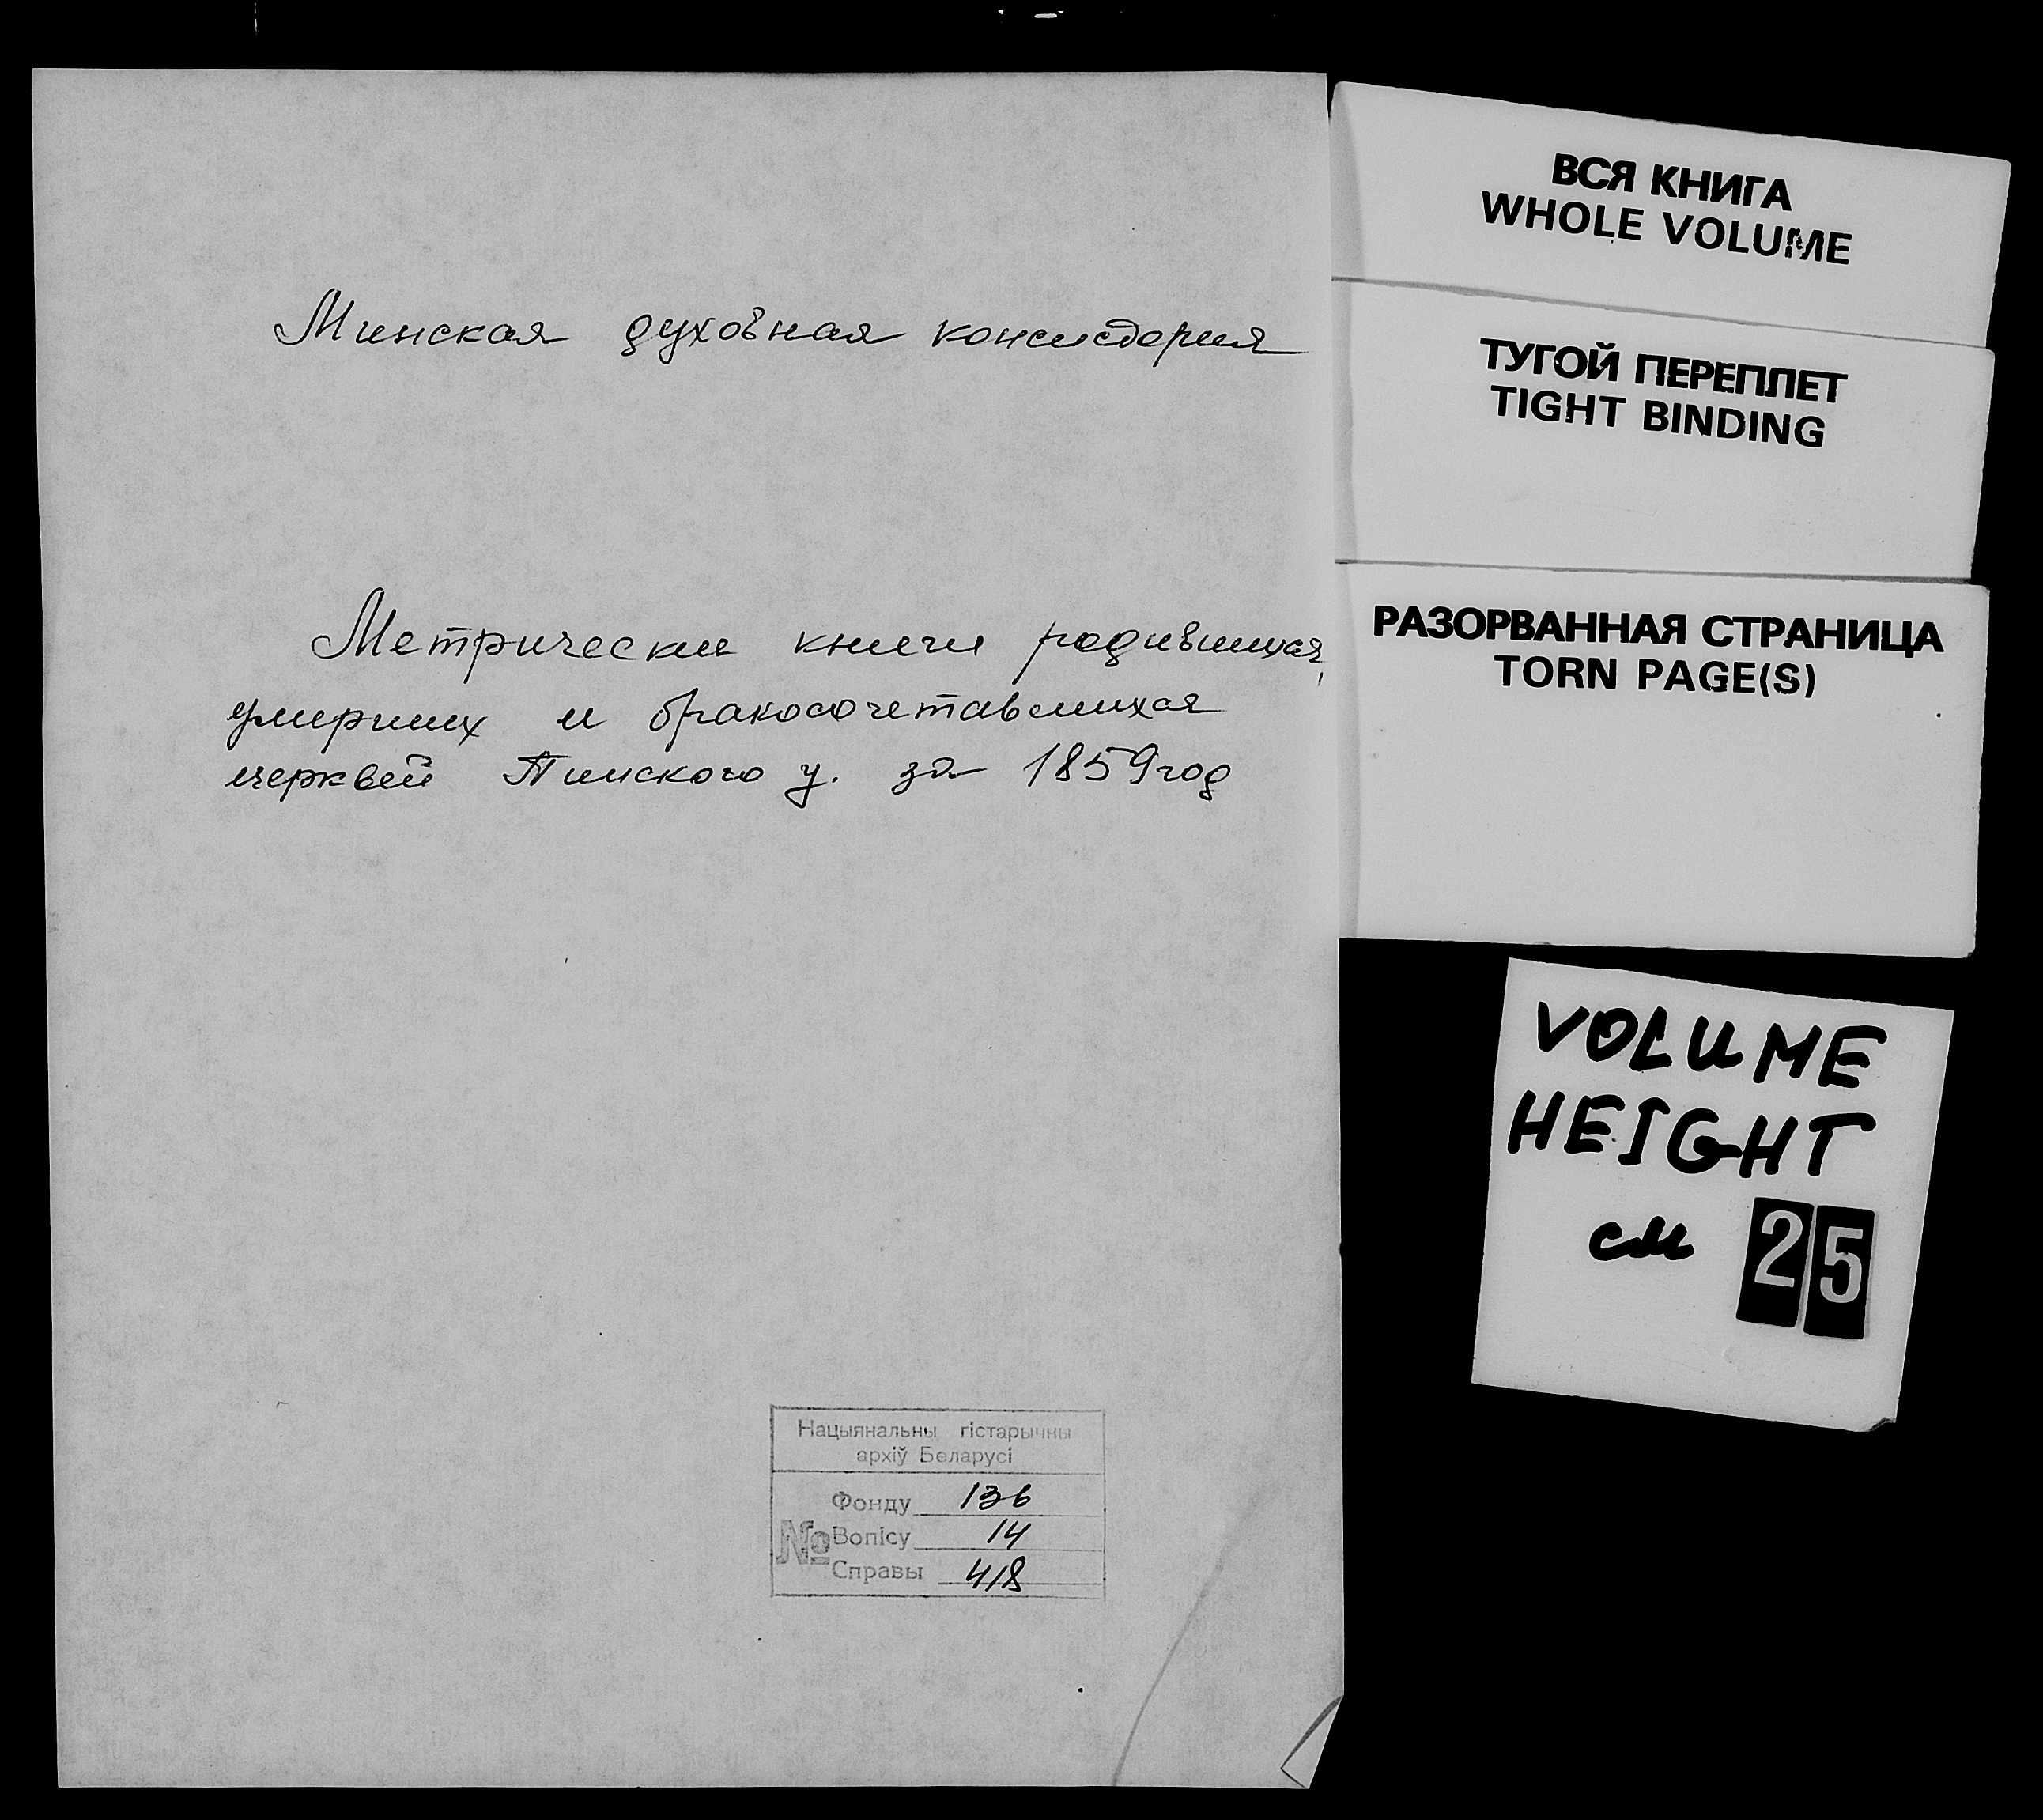 Минская духовная консистория
Метрические книги родившихся,
умерших и бракосочетавшихся
церквей Пинского у. за 1859 год
Нацыянальны гістарычны
архіў Беларусі
Фонду 136
№ Вопісу 14
Справы 418
ВСЯ КНИГА
WHOLE VOLUME
ТУГОЙ ПЕРЕПЛЕТ
TIGHT BINDING
РАЗОРВАННАЯ СТРАНИЦА
TORN PAGE(S)
VOLUME
HEIGHT
см 25